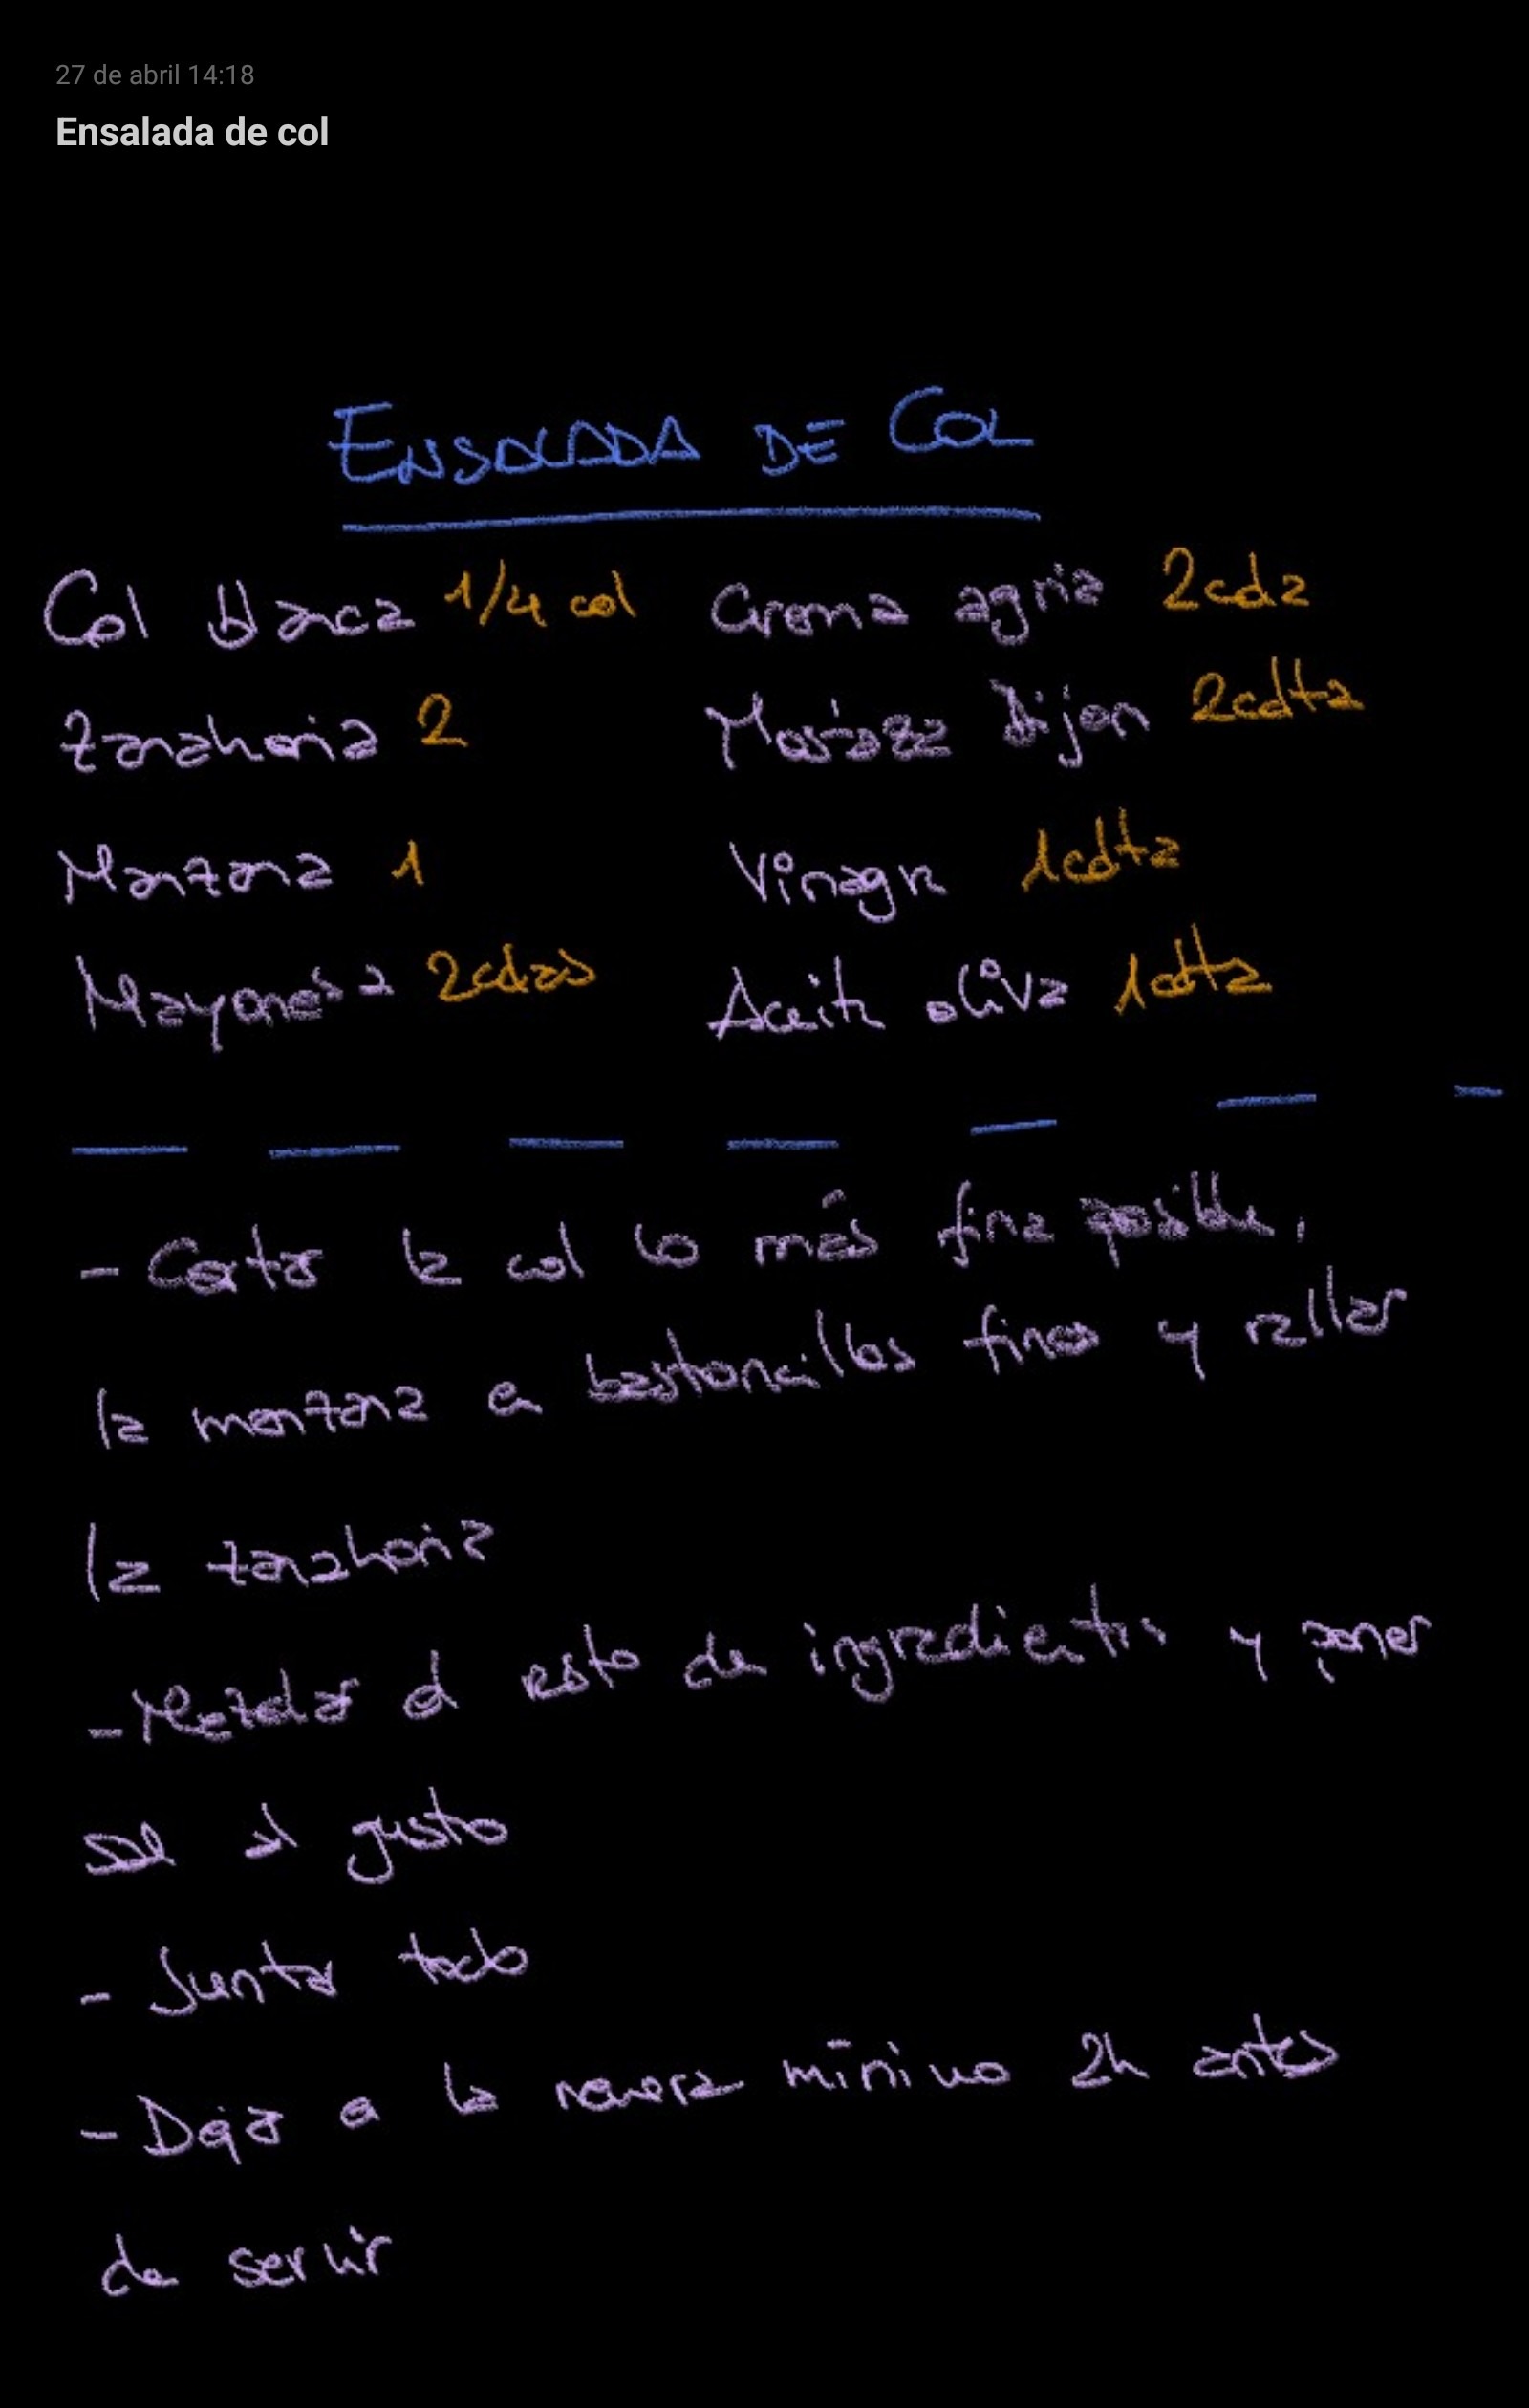 27 de abril 14:18
Ensalada de col
ENSALADA DE COL
Col blanca 1/4 col
Crema agria 2cda
Zanahoria 2
Mostaza Dijon 2cdta
Manzana 1
Vinagre 1cdta
Mayonesa 2cdas
Aceite oliva 1cdta
- Cortar la col lo más fina posible,
la manzana en bastoncillos finos y rallar
la zanahoria
- Mezclar el resto de ingredientes y poner
sal al gusto
- Juntar todo
- Dejar a la nevera mínimo 2h antes
de servir